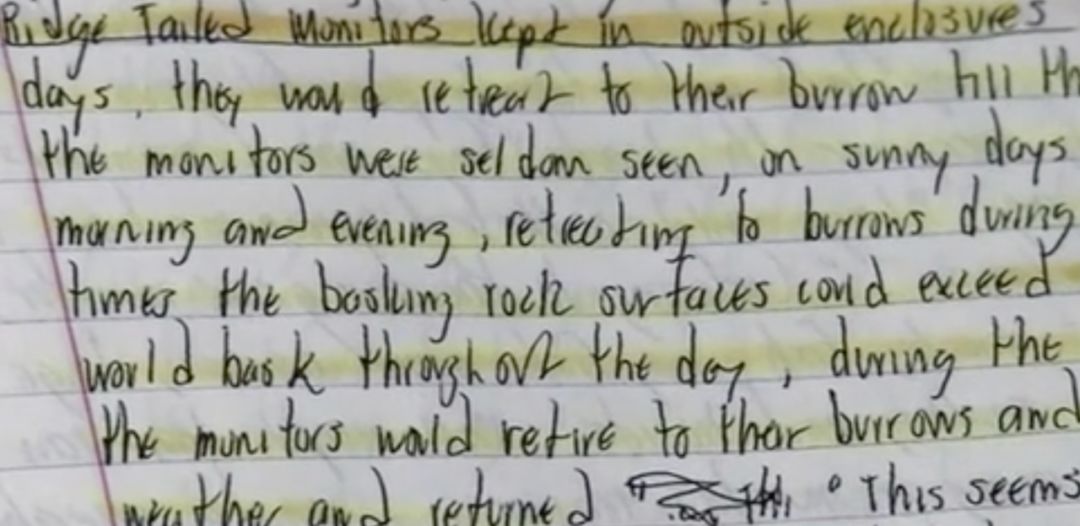 Ridge Tailed Monitors kept in outside enclosures
days, they would retreat to their burrow till th
the monitors were seldom seen, on sunny days
morning and evening, retreating to burrows during
times the basking rock surfaces could exceed
would bask throughout the day, during the
the monitors would retire to their burrows and
weather and returned This seems